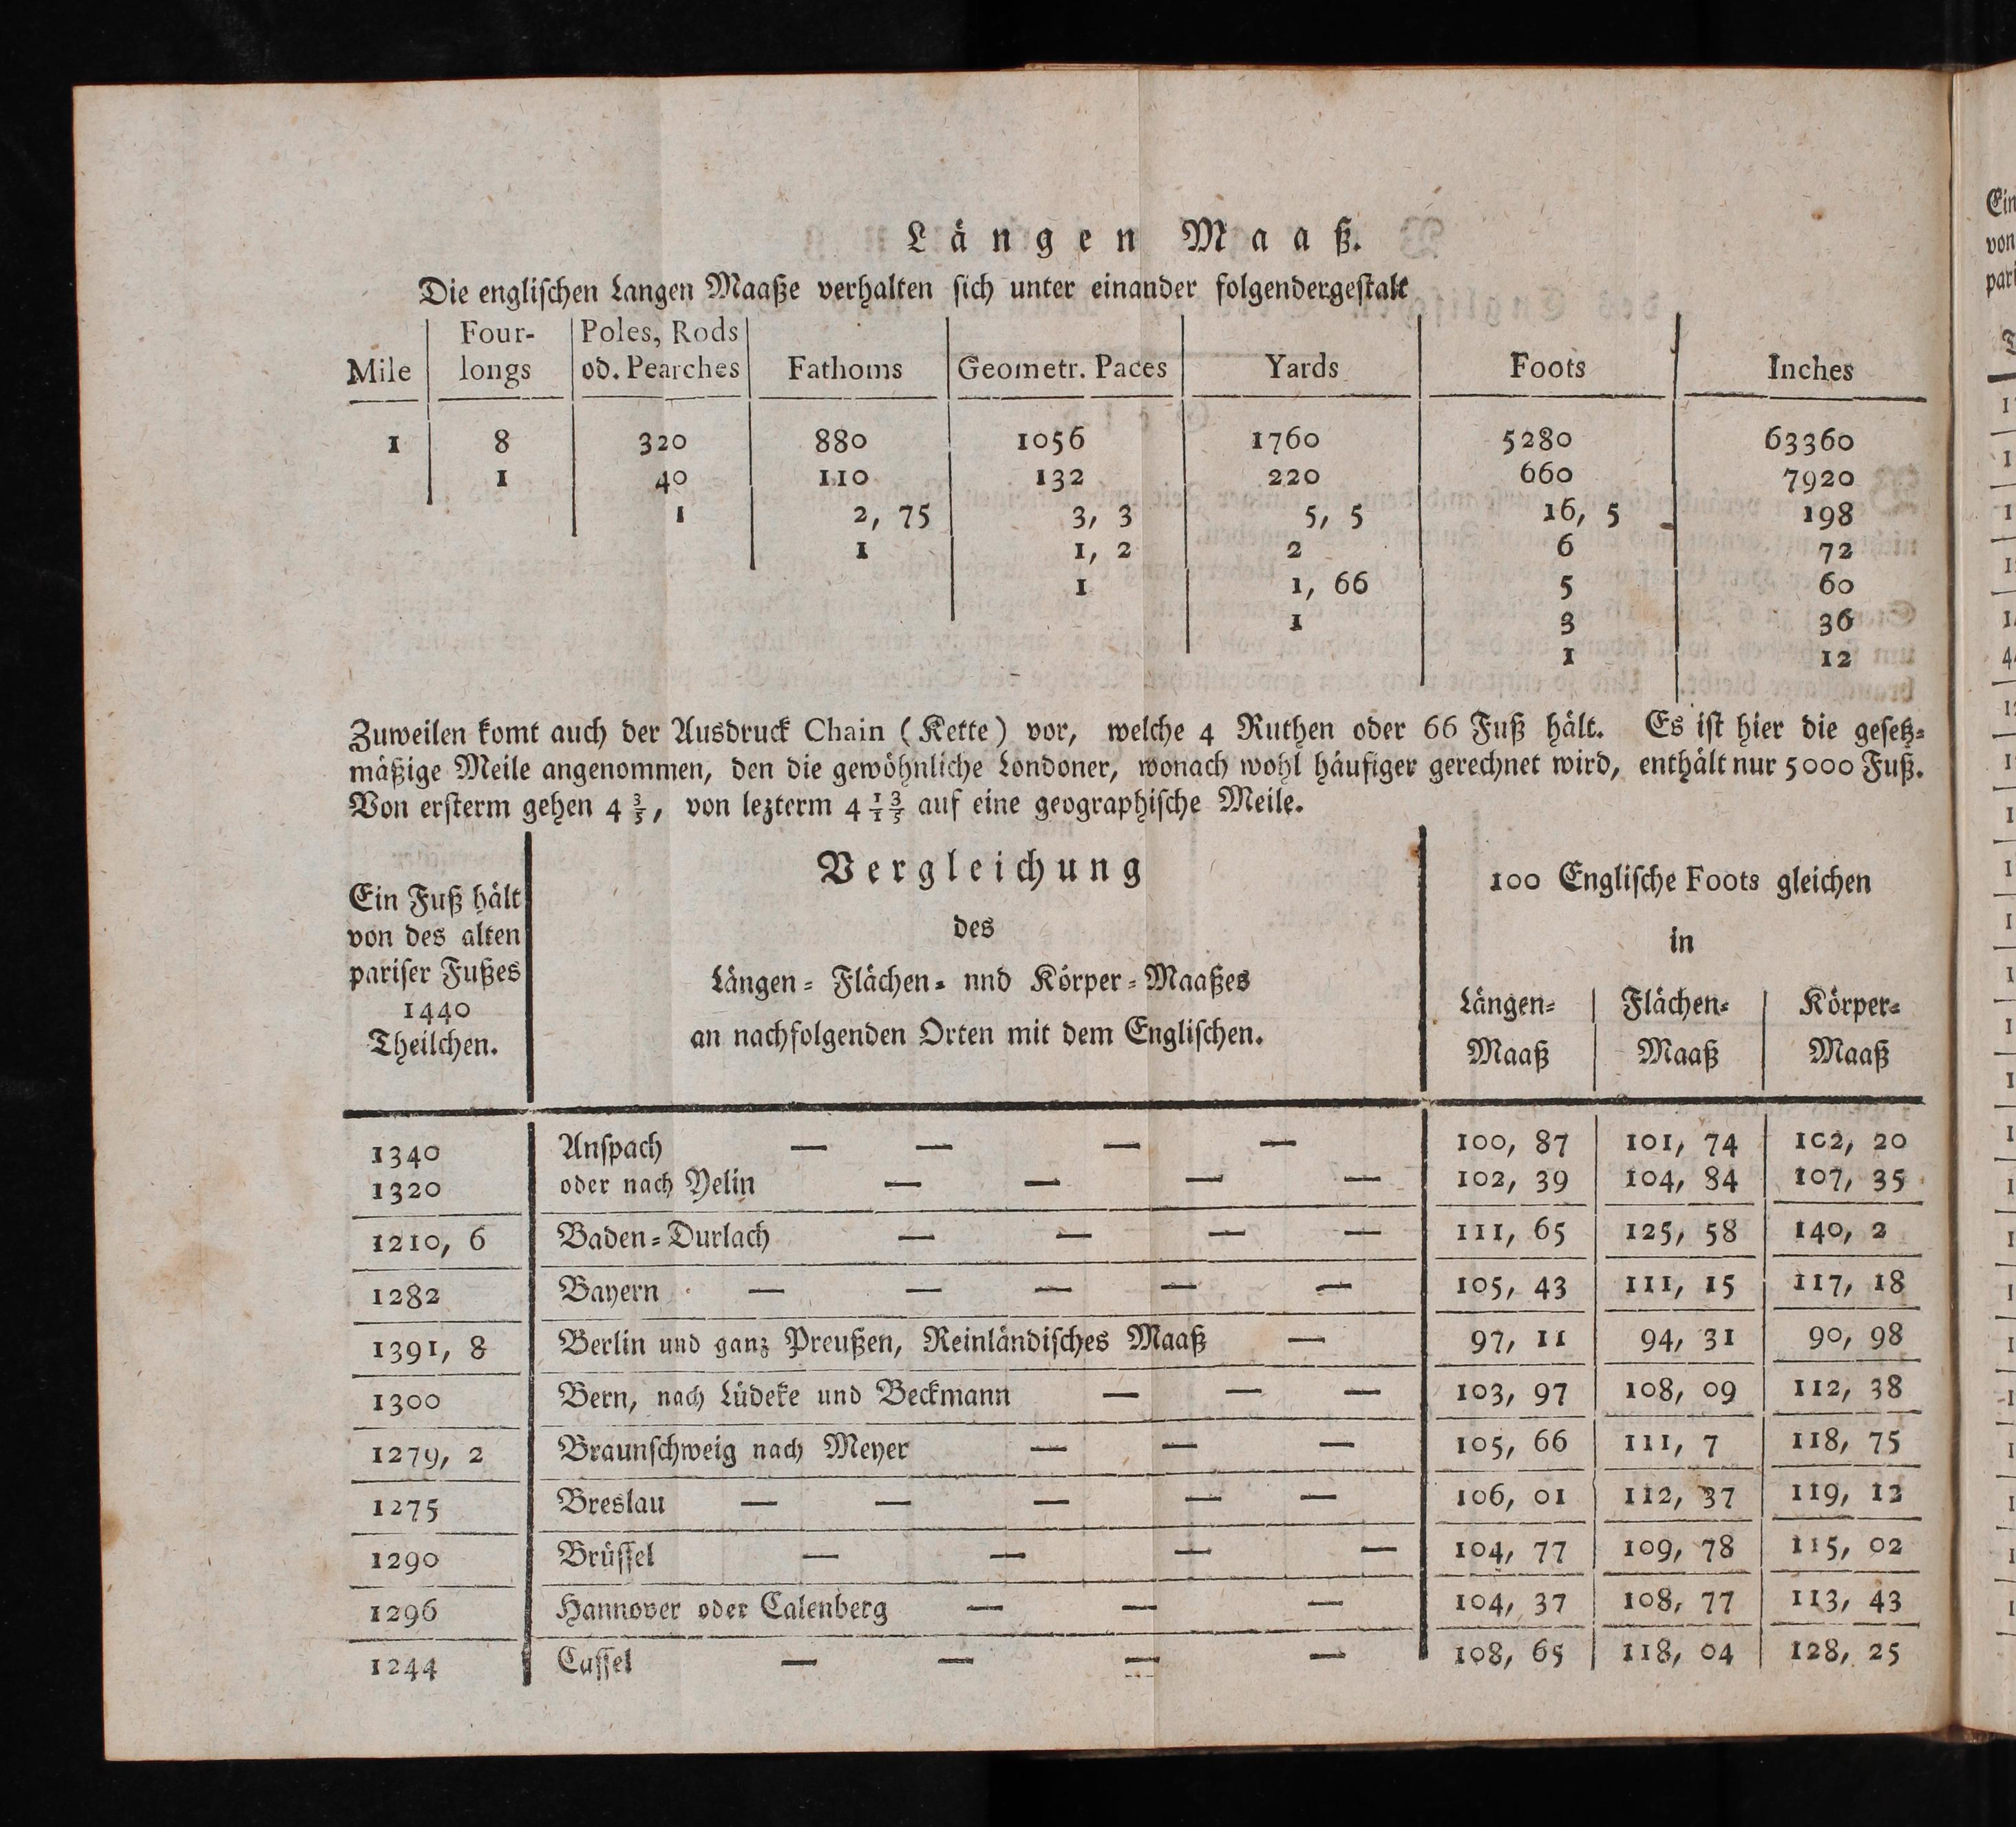 Längen Maaß.
Die englischen Langen Maaße verhalten sich unter einander folgendergestalt
Mile | Four-longs | Poles, Rods od. Pearches | Fathoms | Geometr. Paces | Yards | Foots | Inches
1 | 8 | 320 | 880 | 1056 | 1760 | 5280 | 63360
1 | 40 | 110 | 132 | 220 | 660 | 7920
1 | 2, 75 | 3, 3 | 5, 5 | 16, 5 | 198
1 | 1, 2 | 2 | 6 | 72
1 | 1, 66 | 5 | 60
1 | 3 | 36
1 | 12
Zuweilen komt auch der Ausdruck Chain (Kette) vor, welche 4 Ruthen oder 66 Fuß hält. Es ist hier die gesetz-
mäßige Meile angenommen, den die gewöhnliche Londoner, wonach wohl häufiger gerechnet wird, enthält nur 5000 Fuß.
Von ersterm gehen 4 3/5, von lezterm 4 1/1 3/5 auf eine geographische Meile.
Ein Fuß hält
von des alten
pariser Fußes
1440
Theilchen.
Vergleichung
des
Längen- Flächen- nnd Körper-Maaßes
an nachfolgenden Orten mit dem Englischen.
100 Englische Foots gleichen
in
Längen- | Flächen- | Körper-
Maaß | Maaß | Maaß
1340 | Anspach — — — — | 100, 87 | 101, 74 | 102, 20
1320 | oder nach Yelin — — — — | 102, 39 | 104, 84 | 107, 35
1210, 6 | Baden-Durlach — — — — | 111, 65 | 125, 58 | 140, 2
1282 | Bayern — — — — — | 105, 43 | 111, 15 | 117, 18
1391, 8 | Berlin und ganz Preußen, Reinländisches Maaß — | 97, 11 | 94, 31 | 90, 98
1300 | Bern, nach Lüdeke und Beckmann — — — | 103, 97 | 108, 09 | 112, 38
1279, 2 | Braunschweig nach Meyer — — — | 105, 66 | 111, 7 | 118, 75
1275 | Breslau — — — — — | 106, 01 | 112, 37 | 119, 12
1290 | Brüssel — — — — | 104, 77 | 109, 78 | 115, 02
1296 | Hannover oder Calenberg — — — | 104, 37 | 108, 77 | 113, 43
1244 | Cassel — — — — | 108, 65 | 118, 04 | 128, 25